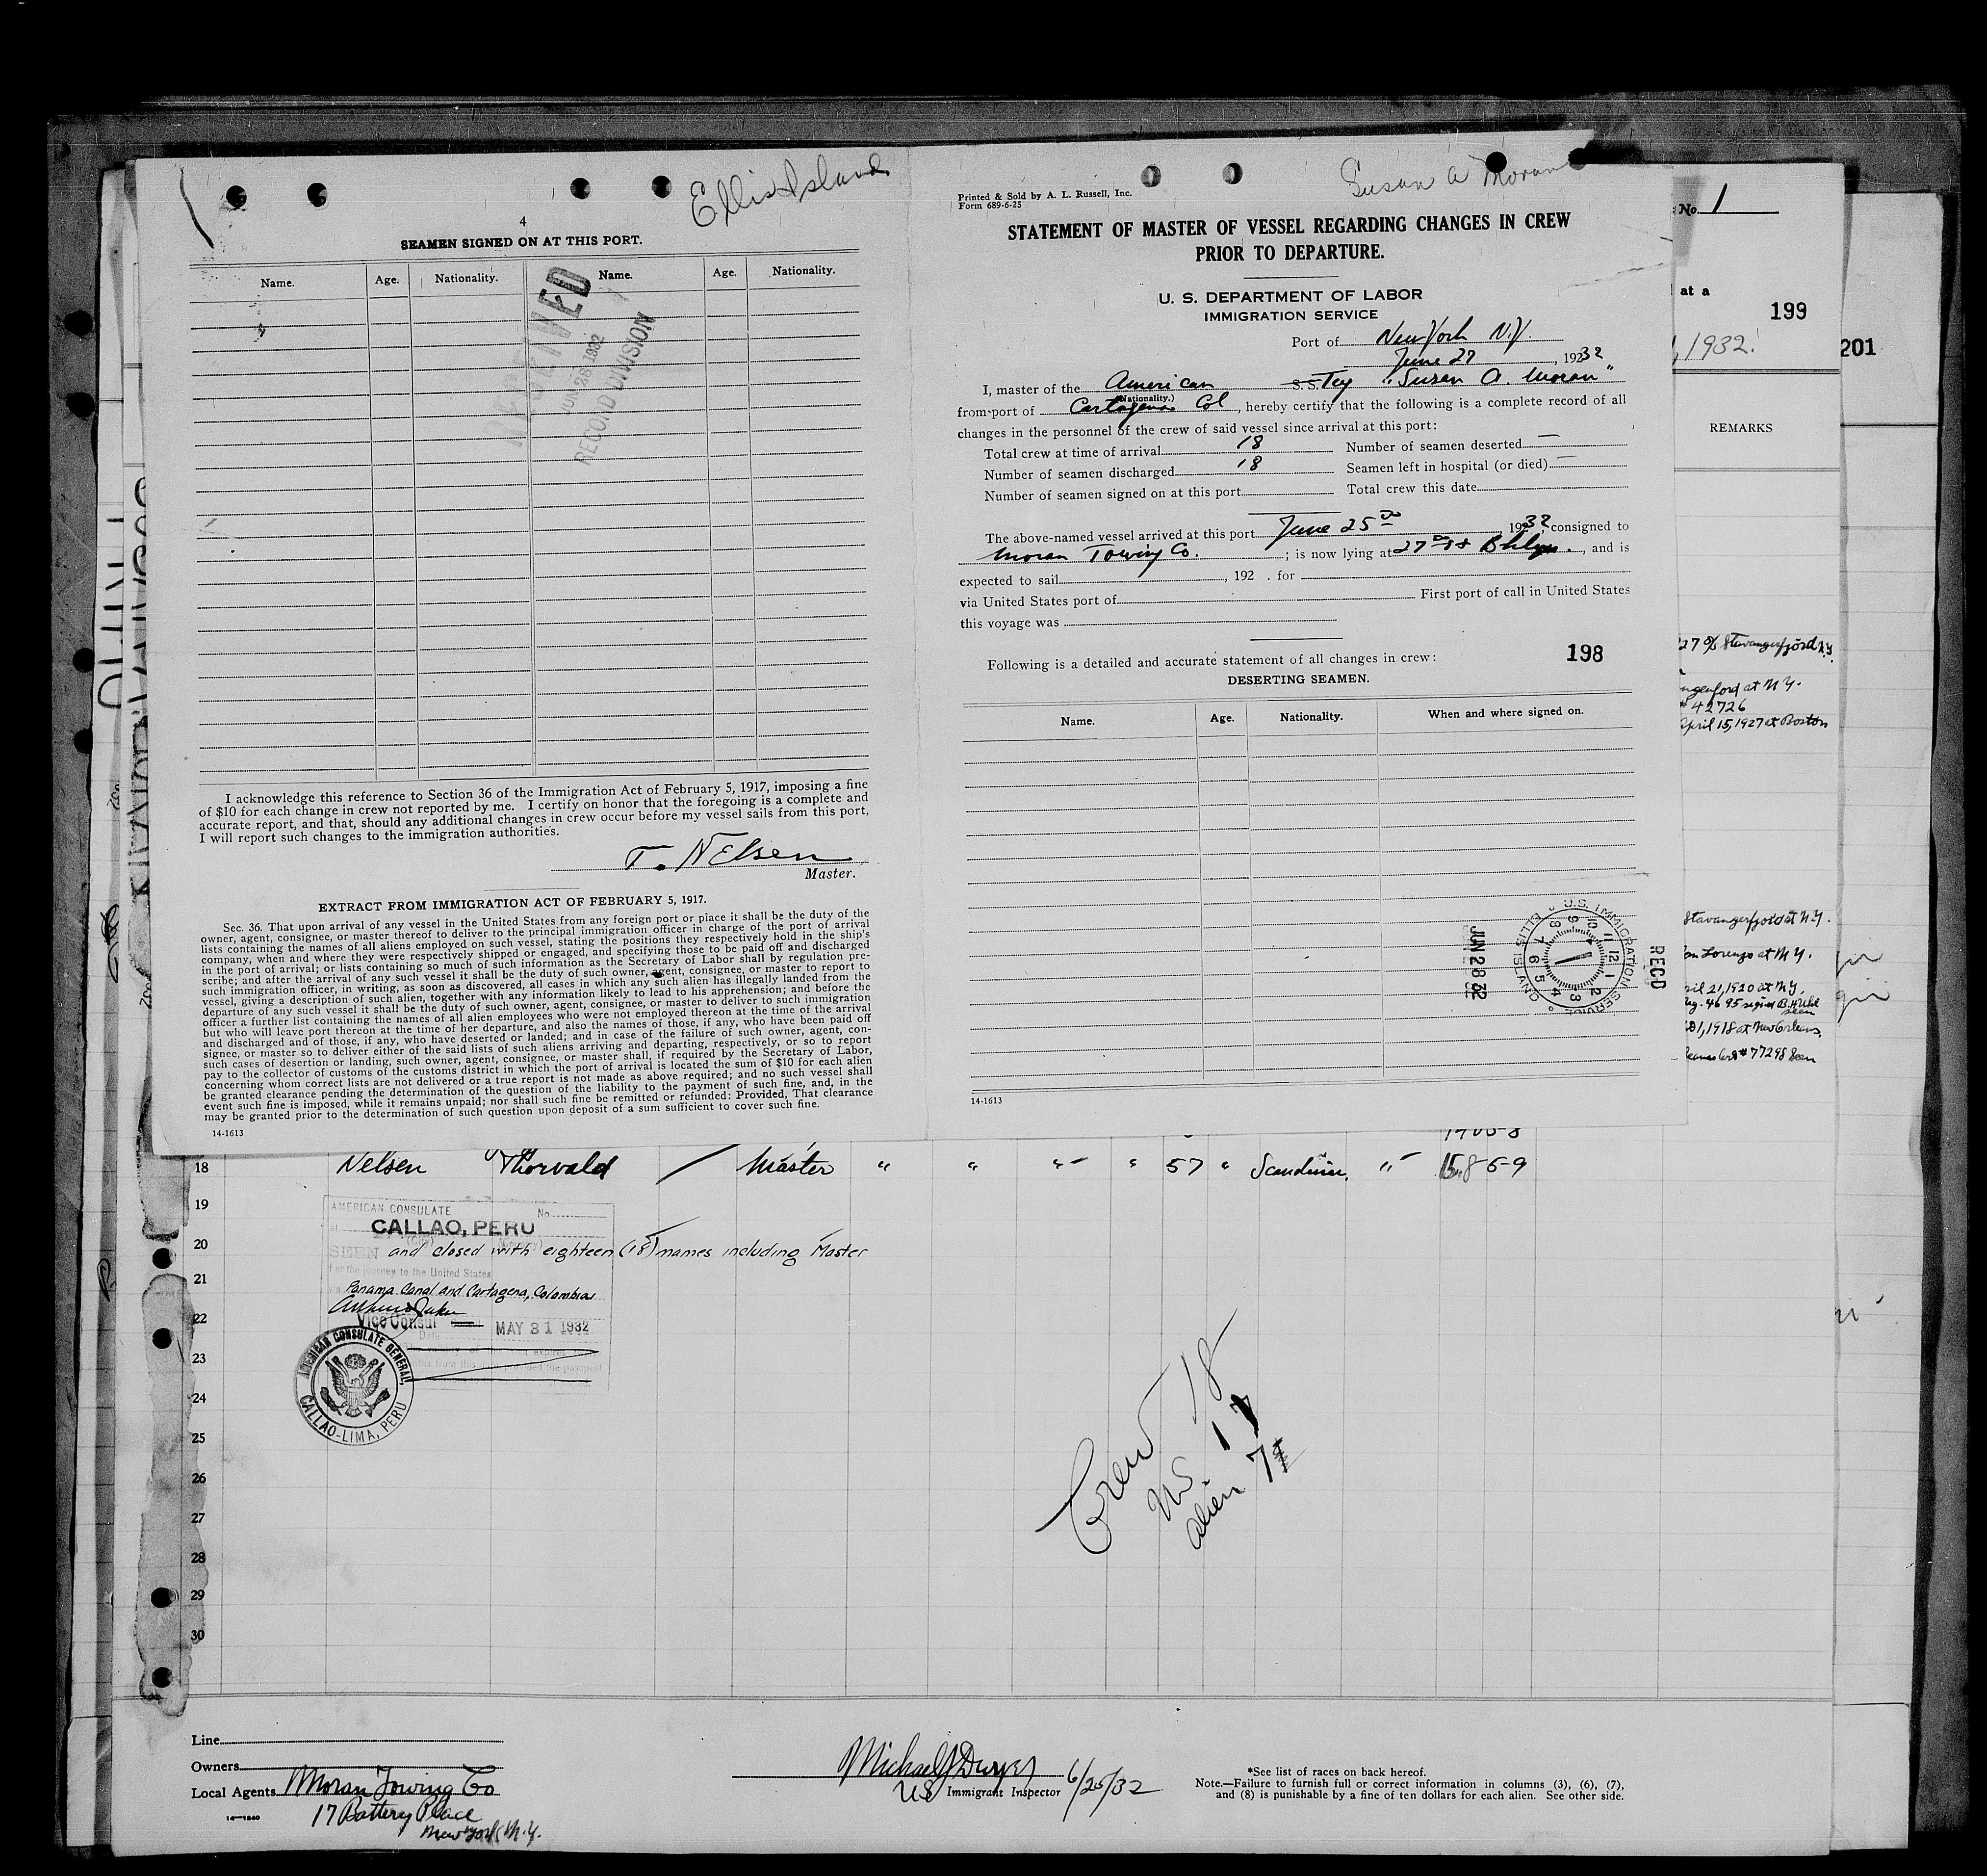 Ellis Island
4
SEAMEN SIGNED ON AT THIS PORT.
Name. Age. Nationality. Name. Age. Nationality.
RECEIVED
JUN 28 1932
RECORD DIVISION
I acknowledge this reference to Section 36 of the Immigration Act of February 5, 1917, imposing a fine
of $10 for each change in crew not reported by me. I certify on honor that the foregoing is a complete and
accurate report, and that, should any additional changes in crew occur before my vessel sails from this port,
I will report such changes to the immigration authorities.
T. Nelsen
Master.
EXTRACT FROM IMMIGRATION ACT OF FEBRUARY 5, 1917.
Sec. 36. That upon arrival of any vessel in the United States from any foreign port or place it shall be the duty of the
owner, agent, consignee, or master thereof to deliver to the principal immigration officer in charge of the port of arrival
lists containing the names of all aliens employed on such vessel, stating the positions they respectively hold in the ship's
company, when and where they were respectively shipped or engaged, and specifying those to be paid off and discharged
in the port of arrival; or lists containing so much of such information as the Secretary of Labor shall by regulation pre-
scribe; and after the arrival of any such vessel it shall be the duty of such owner, agent, consignee, or master to report to
such immigration officer, in writing, as soon as discovered, all cases in which any such alien has illegally landed from the
vessel, giving a description of such alien, together with any information likely to lead to his apprehension; and before the
departure of any such vessel it shall be the duty of such owner, agent, consignee, or master to deliver to such immigration
officer a further list containing the names of all alien employees who were not employed thereon at the time of the arrival
but who will leave port thereon at the time of her departure, and also the names of those, if any, who have been paid off
and discharged and of those, if any, who have deserted or landed; and in case of the failure of such owner, agent, con-
signee, or master so to deliver either of the said lists of such aliens arriving and departing, respectively, or so to report
such cases of desertion or landing, such owner, agent, consignee, or master shall, if required by the Secretary of Labor,
pay to the collector of customs of the customs district in which the port of arrival is located the sum of $10 for each alien
concerning whom correct lists are not delivered or a true report is not made as above required; and no such vessel shall
be granted clearance pending the determination of the question of the liability to the payment of such fine, and, in the
event such fine is imposed, while it remains unpaid; nor shall such fine be remitted or refunded: Provided, That clearance
may be granted prior to the determination of such question upon deposit of a sum sufficient to cover such fine.
14-1613
Susan A Moran
Printed & Sold by A. L. Russell, Inc.
Form 689-6-25
STATEMENT OF MASTER OF VESSEL REGARDING CHANGES IN CREW
PRIOR TO DEPARTURE.
U. S. DEPARTMENT OF LABOR
IMMIGRATION SERVICE
Port of New York N.Y.
June 27, 19232
I, master of the American S.S. Tug "Susan A. Moran"
(Nationality.)
from port of Cartagena Col, hereby certify that the following is a complete record of all
changes in the personnel of the crew of said vessel since arrival at this port:
Total crew at time of arrival 18 Number of seamen deserted —
Number of seamen discharged 18 Seamen left in hospital (or died) —
Number of seamen signed on at this port Total crew this date
The above-named vessel arrived at this port June 25th, 1932, consigned to
Moran Towing Co.; is now lying at 27th St Bklyn., and is
expected to sail, 192 . for
via United States port of First port of call in United States
this voyage was
198
Following is a detailed and accurate statement of all changes in crew:
DESERTING SEAMEN.
Name. Age. Nationality. When and where signed on.
U.S. IMMIGRATION SERVICE ELLIS ISLAND
JUN 28 32
RECD
14-1613
No. 1
at a
199
, 1932.
201
REMARKS
27 % Stavangerfjord N.Y.
at N Y.
# 42726
April 15, 1927 at Boston
Stavangerfjord at N.Y.
San Lorenzo at N Y.
April 21, 1920 at N Y.
4695 seen
1, 1918 at New Orleans
# 77298 Seen
18 Nelsen Thorvald / Master " " " " 57 " Scandin. " 5-9
19
20
21
22
23
24
25
26
27
28
29
30
AMERICAN CONSULATE No.
CALLAO, PERU
SEEN and closed with eighteen (18) names including Master
for the journey to the United States
Panama Canal and Cartagena, Colombia
Vice Consul
Date MAY 31 1932
AMERICAN CONSULATE GENERAL, CALLAO-LIMA, PERU
Crew 18
US 17
alien 7
Line
Owners
Local Agents Moran Towing Co
17 Battery Place
New York N.Y.
14—1240
Michael J Dwyer 6/25/32
US Immigrant Inspector
*See list of races on back hereof.
Note.—Failure to furnish full or correct information in columns (3), (6), (7),
and (8) is punishable by a fine of ten dollars for each alien. See other side.